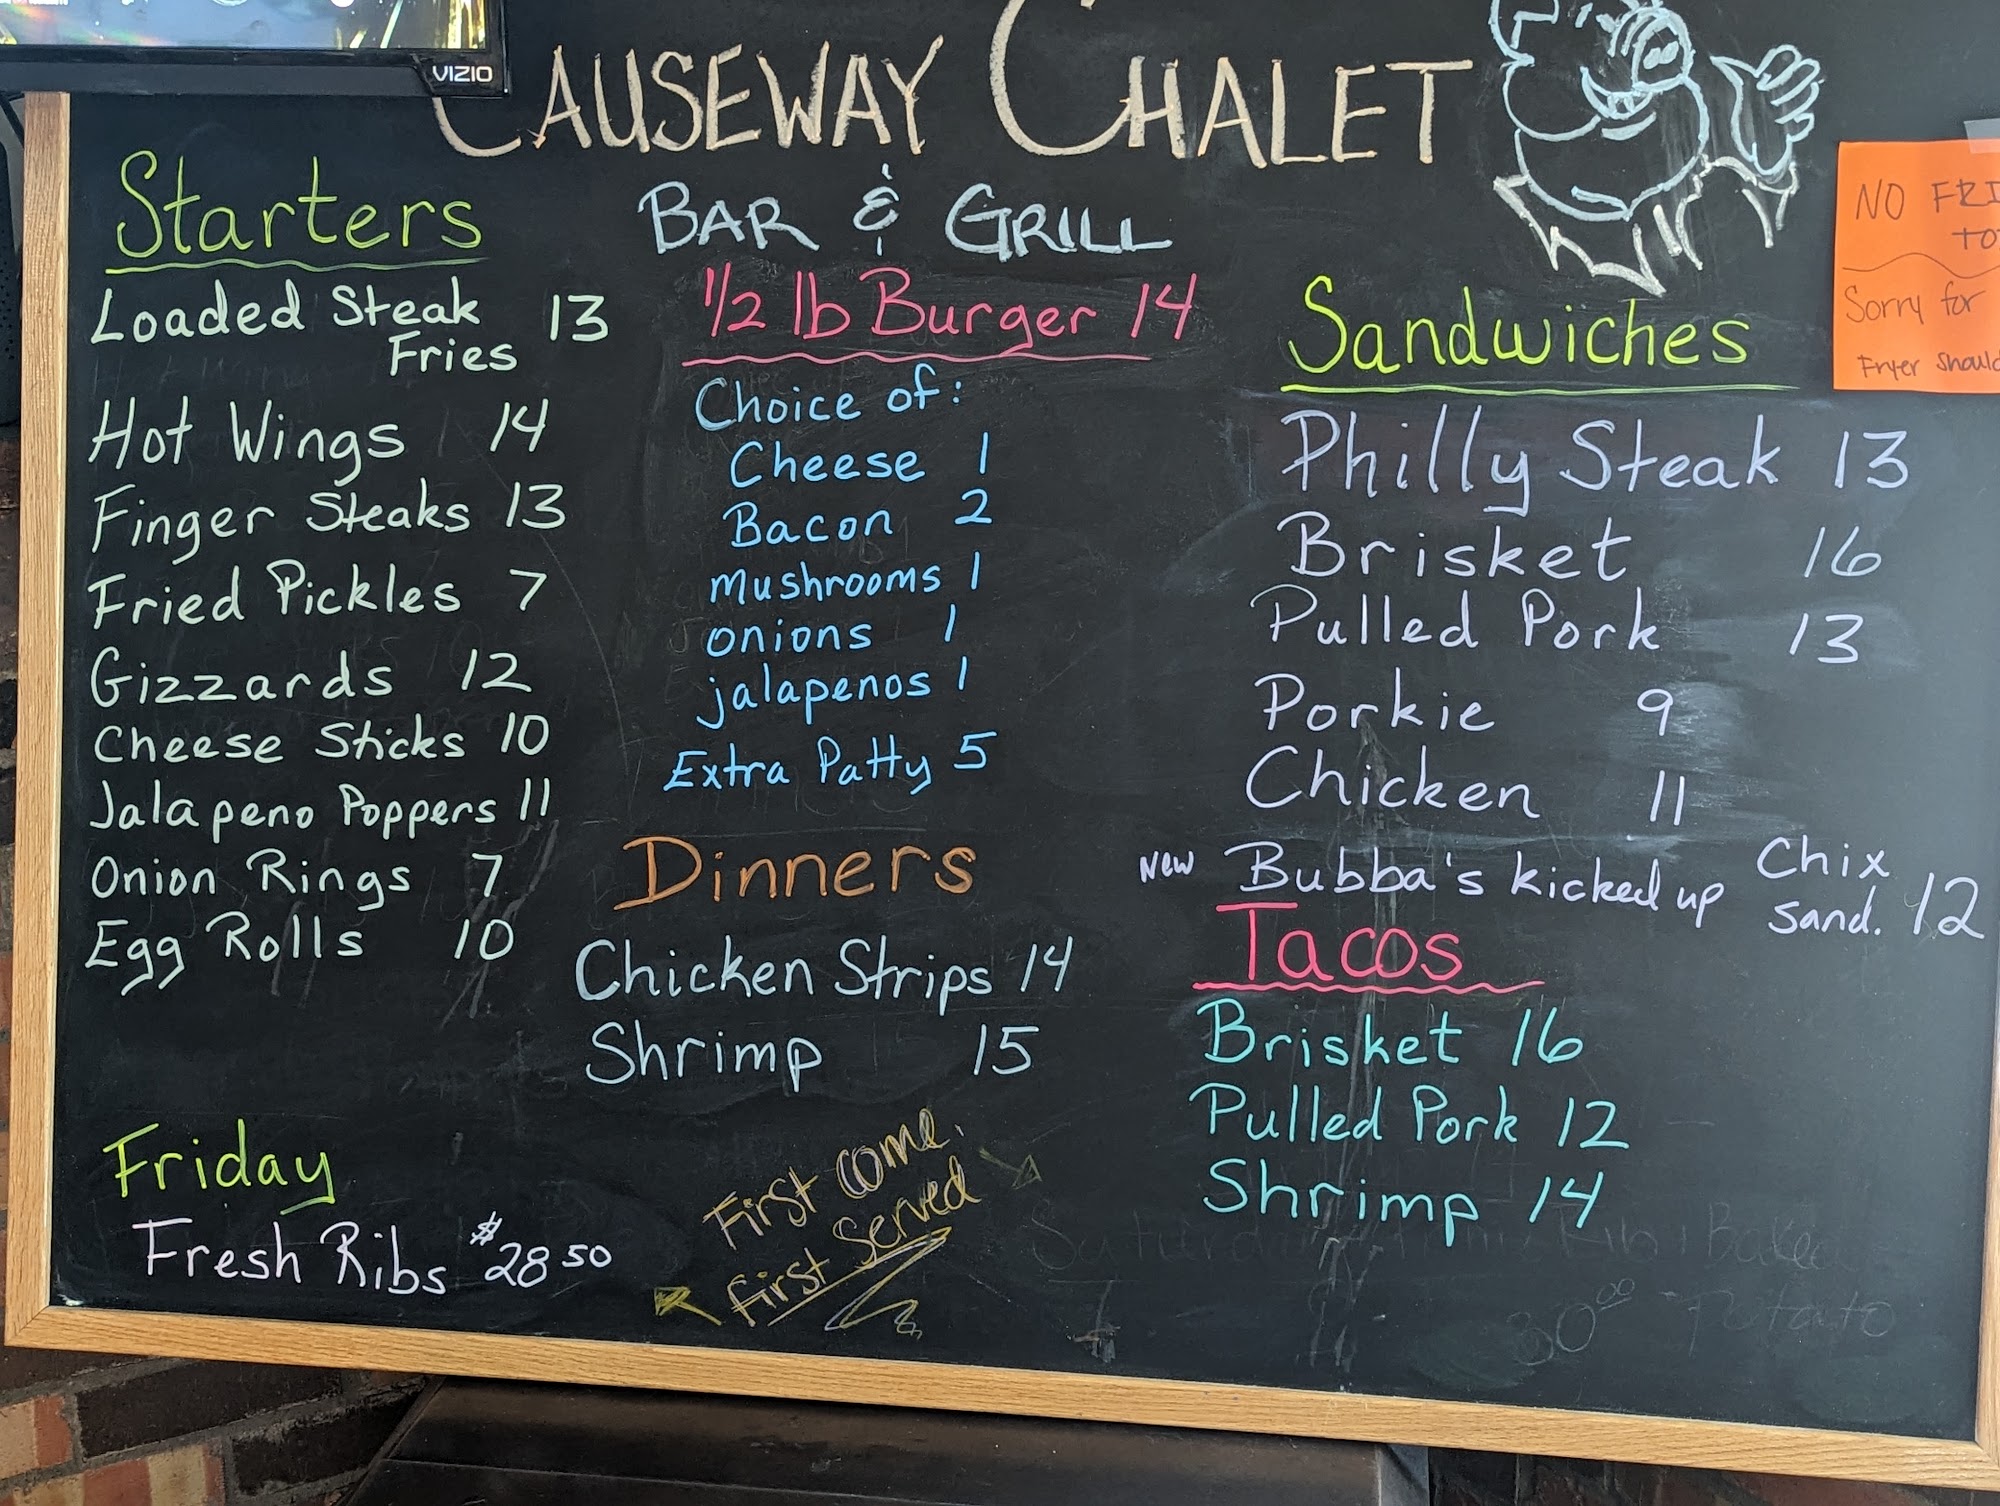 VIZIO
CAUSEWAY CHALET
BAR & GRILL
Starters
Loaded Steak 13
Fries
Hot Wings 14
Finger Steaks 13
Fried Pickles 7
Gizzards 12
Cheese Sticks 10
Jalapeno Poppers 11
Onion Rings 7
Egg Rolls 10
Friday
Fresh Ribs $28 50
1/2 lb Burger 14
Choice of:
Cheese 1
Bacon 2
Mushrooms 1
onions 1
jalapenos 1
Extra Patty 5
Dinners
Chicken Strips 14
Shrimp 15
First come.
first Served
Sandwiches
Philly Steak 13
Brisket 16
Pulled Pork 13
Porkie 9
Chicken 11
New Bubba's kicked up Chix
sand. 12
Tacos
Brisket 16
Pulled Pork 12
Shrimp 14
Baked
30.00 Potato
NO
Sorry for
Fryer should